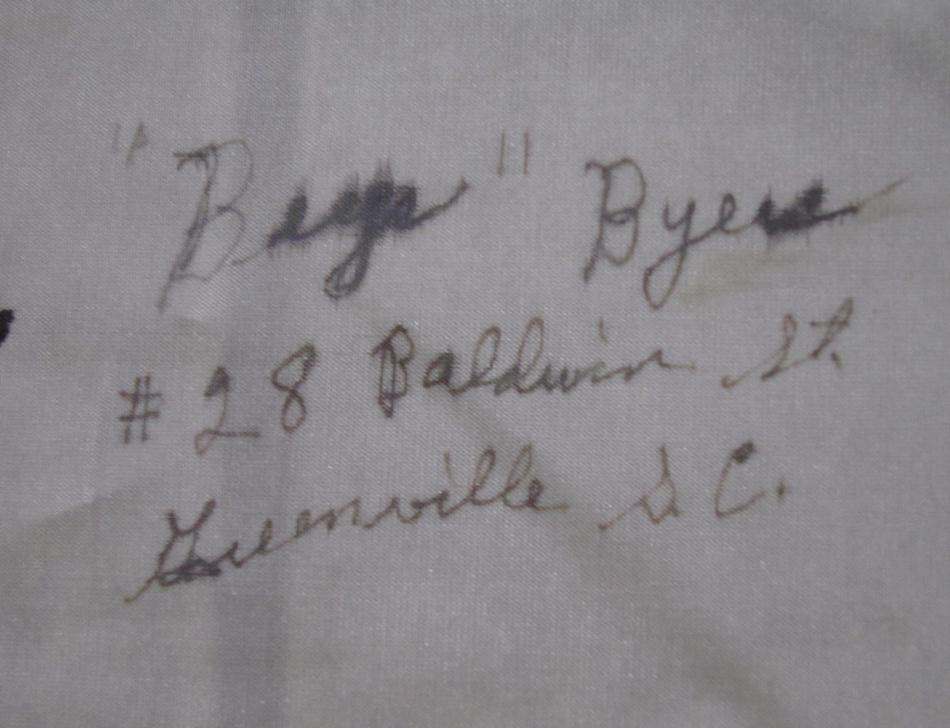 " " Byers
# 28 Baldwin St.
Greenville S C.